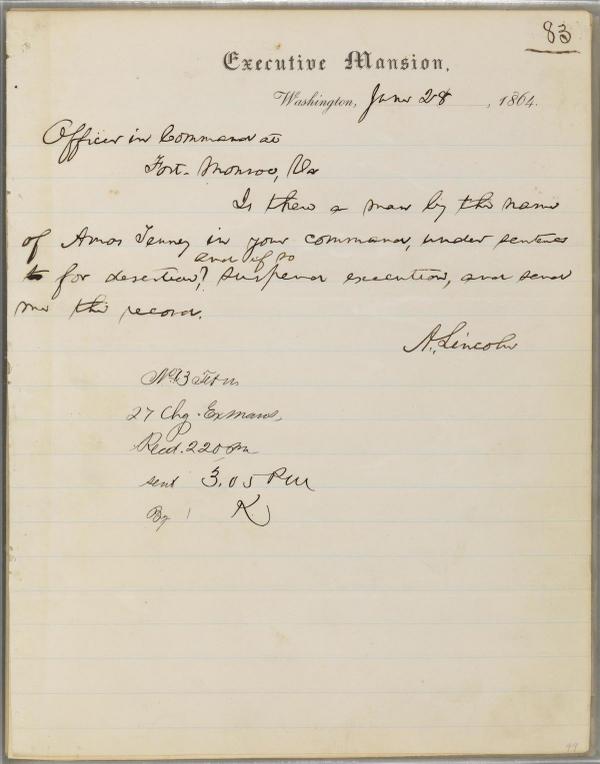 83
Executive Mansion,
Washington, June 28, 1864.
Officer in Command at
Fort-Monroe, Va
Is there a man by the name
of Amos Tenney in your command, under sentence
to for desertion? and if so suspend execution, and send
me the record.
A. Lincoln
27 Chg. Ex Mans.
Recd. 2 20 Pm
sent 3.05 PM
By K
99